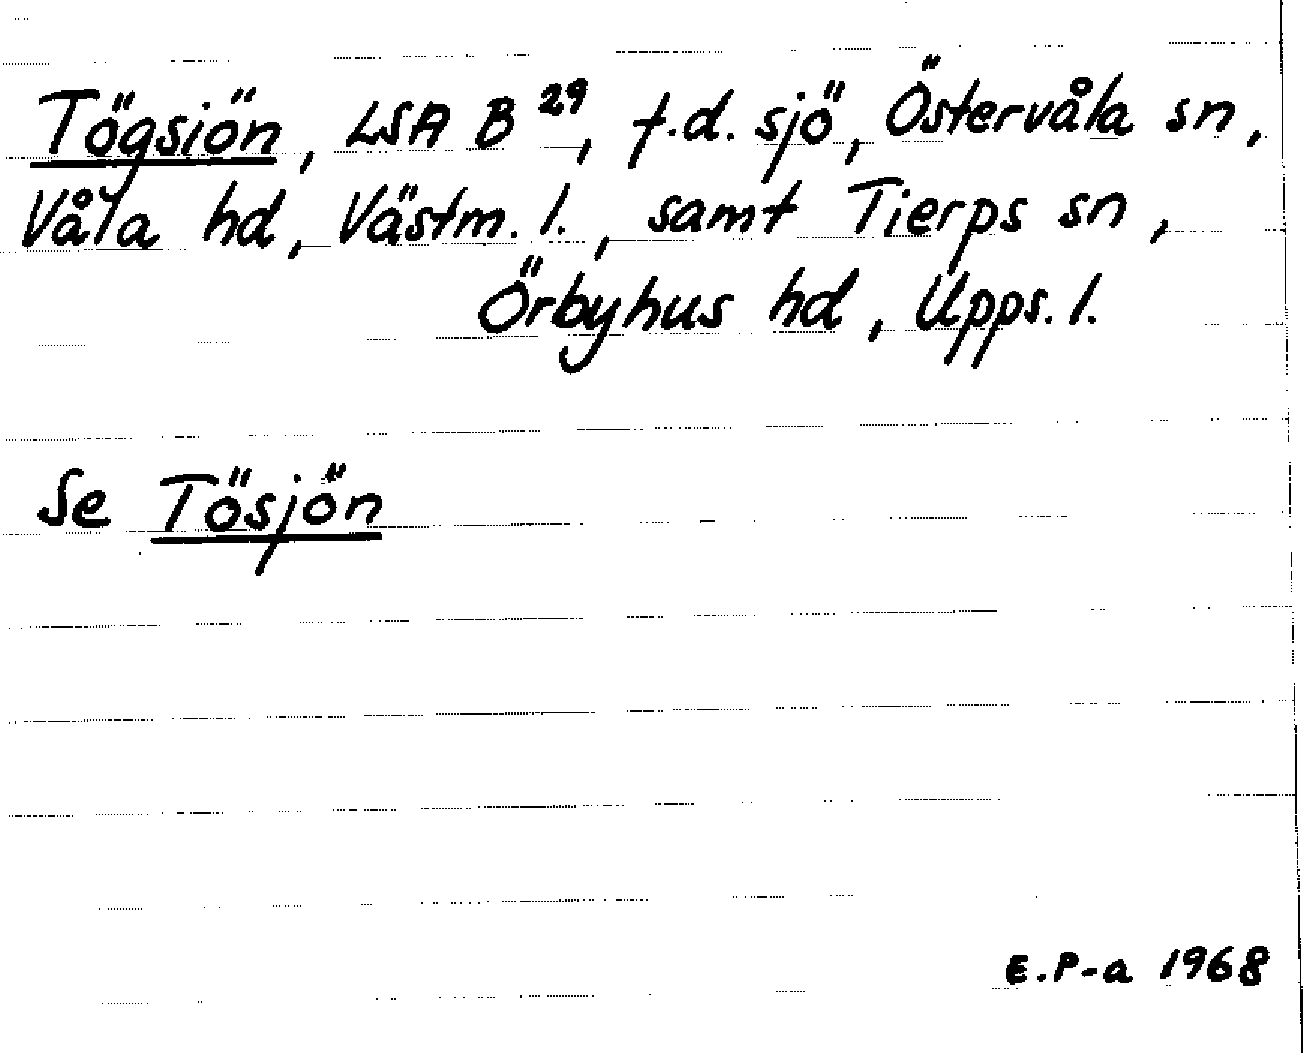 Tögsiön, LSA B 29, f.d. sjö, Östervåla sn,
Våla hd, Västm. l., samt Tierps sn,
Örbyhus hd, Upps. l.
Se Tösjön
E.P-a 1968